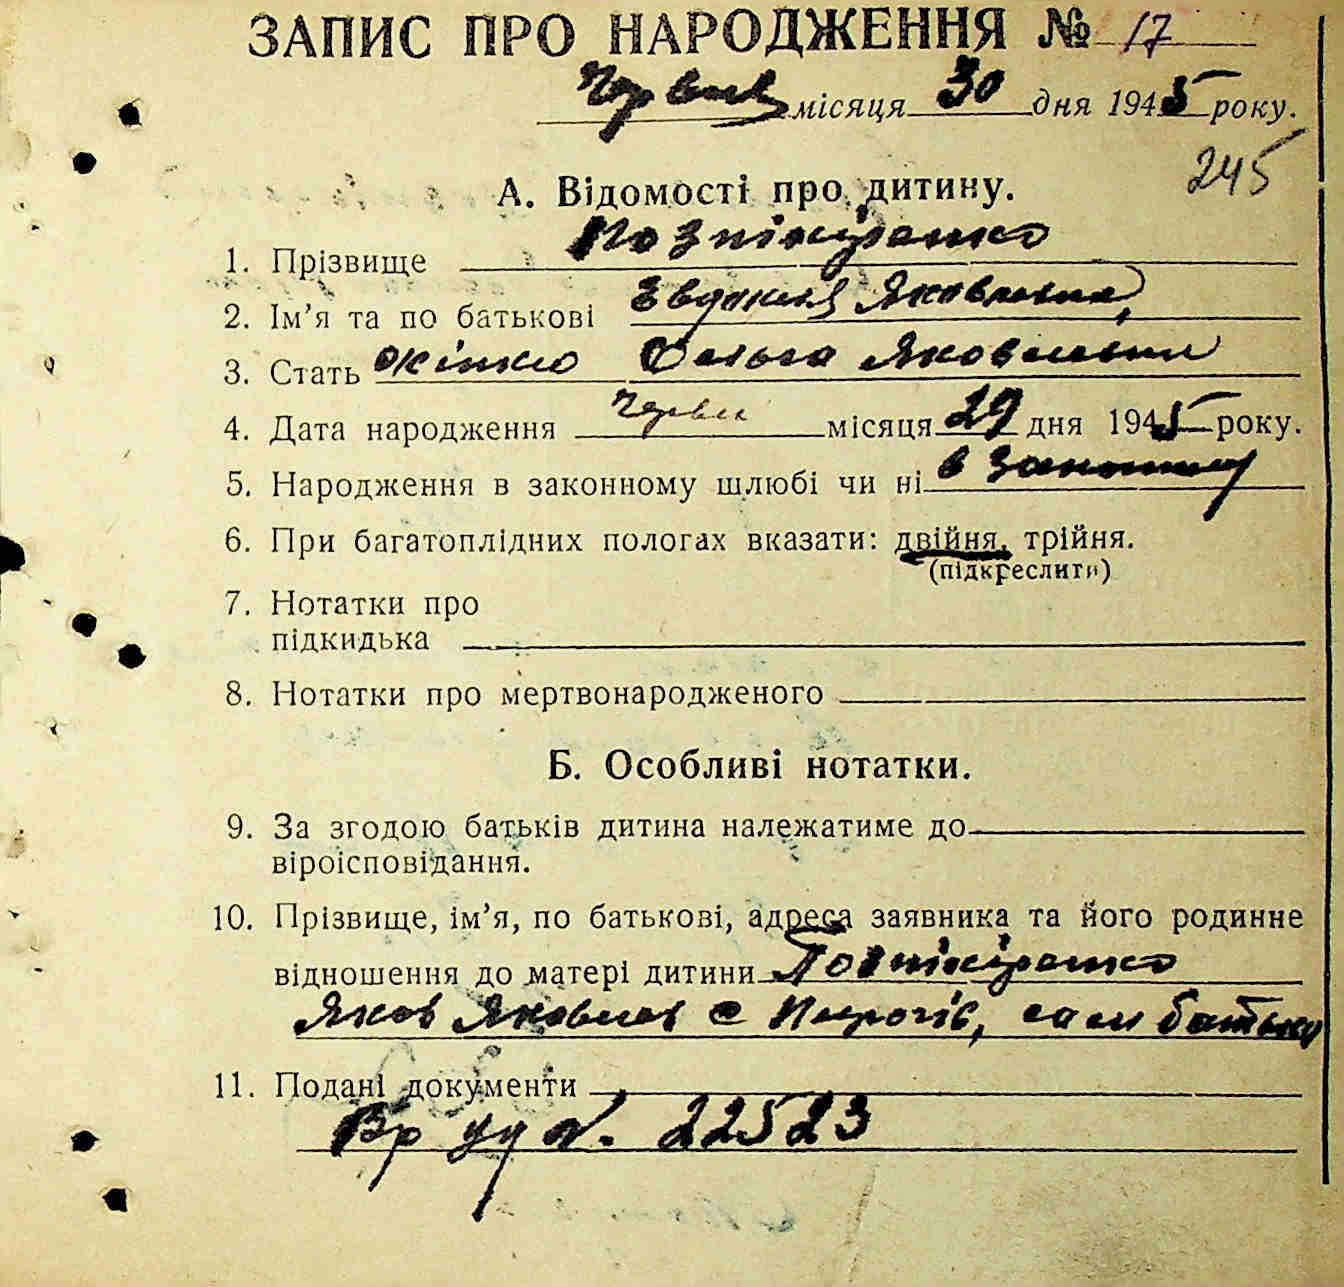 ЗАПИС ПРО НАРОДЖЕННЯ № 17
Червня місяця 30 дня 1945 року.
245
А. Відомості про дитину.
1. Прізвище
2. Ім'я та по батькові Явдокия Яковлевна,
3. Стать жіноча Ольга Яковлевна
4. Дата народження червня місяця 29 дня 1945 року.
5. Народження в законному шлюбі чи ні в законному
6. При багатоплідних пологах вказати: двійня, трійня.
(підкреслити)
7. Нотатки про
підкидька
8. Нотатки про мертвонародженого
Б. Особливі нотатки.
9. За згодою батьків дитина належатиме до
віроісповідання.
10. Прізвище, ім'я, по батькові, адреса заявника та його родинне
відношення до матері дитини
Яков Яковлев с Пирогів, сам батько
11. Подані документи
22523